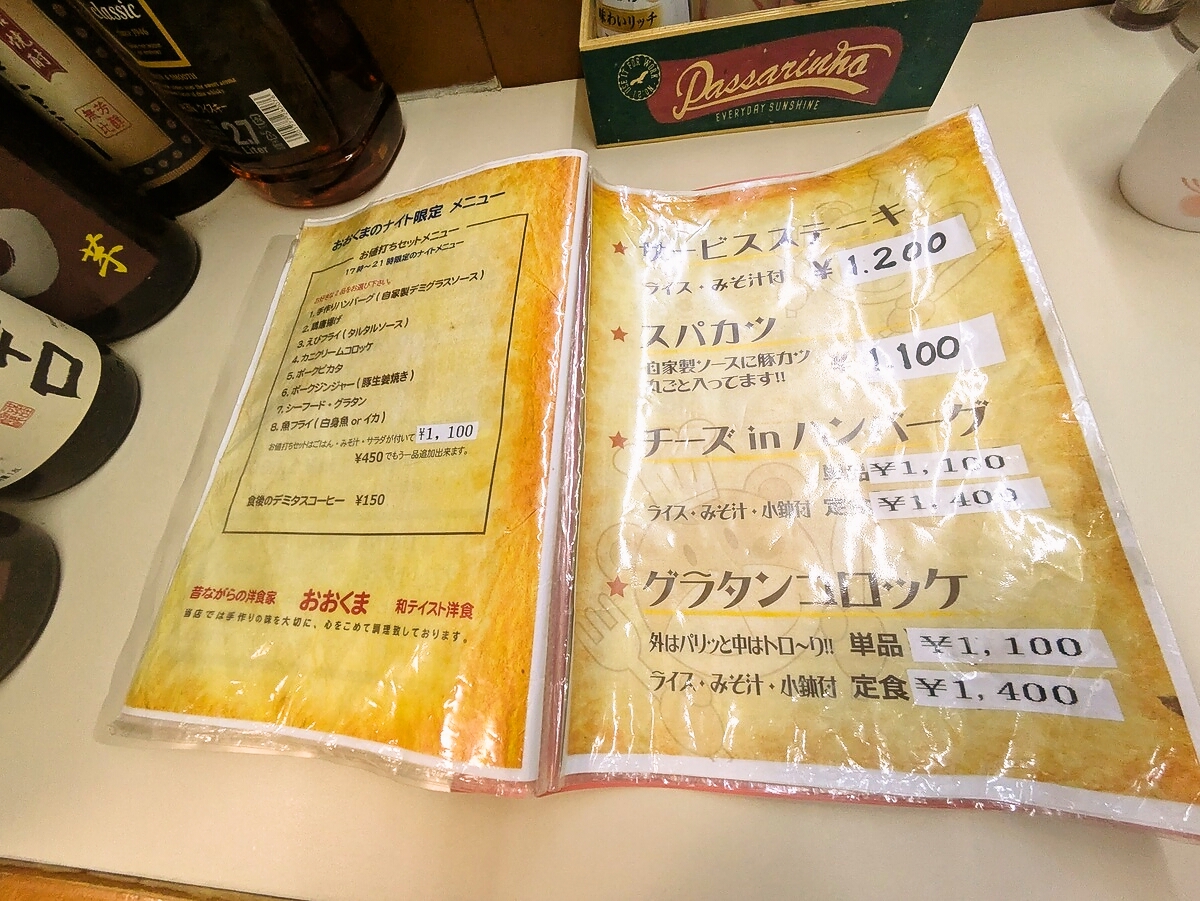 classic
SINCE 1946
2.7
Liter
芳醇
無比
芋
味わいリッチ
Passarinho
EVERYDAY SUNSHINE
おおくまのナイト限定 メニュー
お値打ちセットメニュー
17時~21時限定のナイトメニュー
お好きな2品をお選び下さい。
1. 手作りハンバーグ(自家製デミグラスソース)
2. 鶏唐揚げ
3. えびフライ(タルタルソース)
4. カニクリームコロッケ
5. ポークピカタ
6. ポークジンジャー(豚生姜焼き)
7. シーフード・グラタン
8. 魚フライ(白身魚 or イカ)
お値打ちセットはごはん・みそ汁・サラダが付いて ¥1,100
¥450でもう一品追加出来ます。
食後のデミタスコーヒー ¥150
昔ながらの洋食家 おおくま 和テイスト洋食
当店では手作りの味を大切に、心をこめて調理致しております。
★ サービスステーキ
ライス・みそ汁付 ¥1.200
★ スパカツ
自家製ソースに豚カツ ¥1.100
丸ごと入ってます!!
★ チーズ in ハンバーグ
単品 ¥1,100
ライス・みそ汁・小鉢付 定食 ¥1,400
★ グラタンコロッケ
外はパリッと中はトロ~り!! 単品 ¥1,100
ライス・みそ汁・小鉢付 定食 ¥1,400